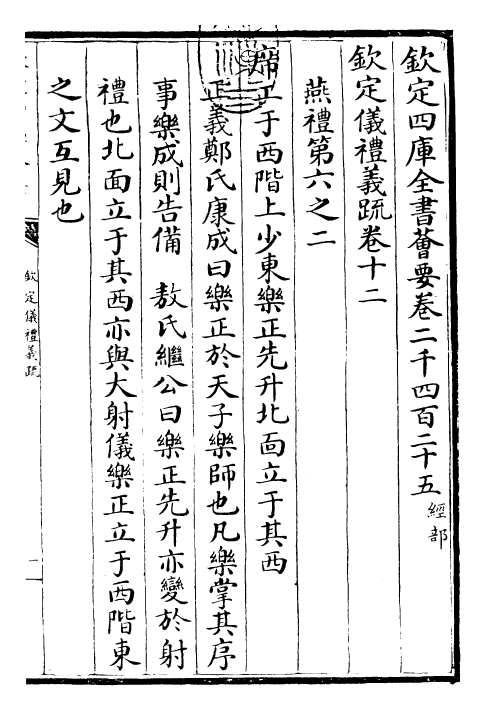 欽定四庫全書薈要卷二千四百二十五經部
欽定儀禮義疏卷十二
燕禮第六之二
席工于西階上少東樂正先升北面立于其西
正義鄭氏康成曰樂正於天子樂師也凡樂掌其序
事樂成則告備 敖氏繼公曰樂正先升亦變於射
禮也北面立于其西亦與大射儀樂正立于西階東
之文互見也
欽定儀禮義疏